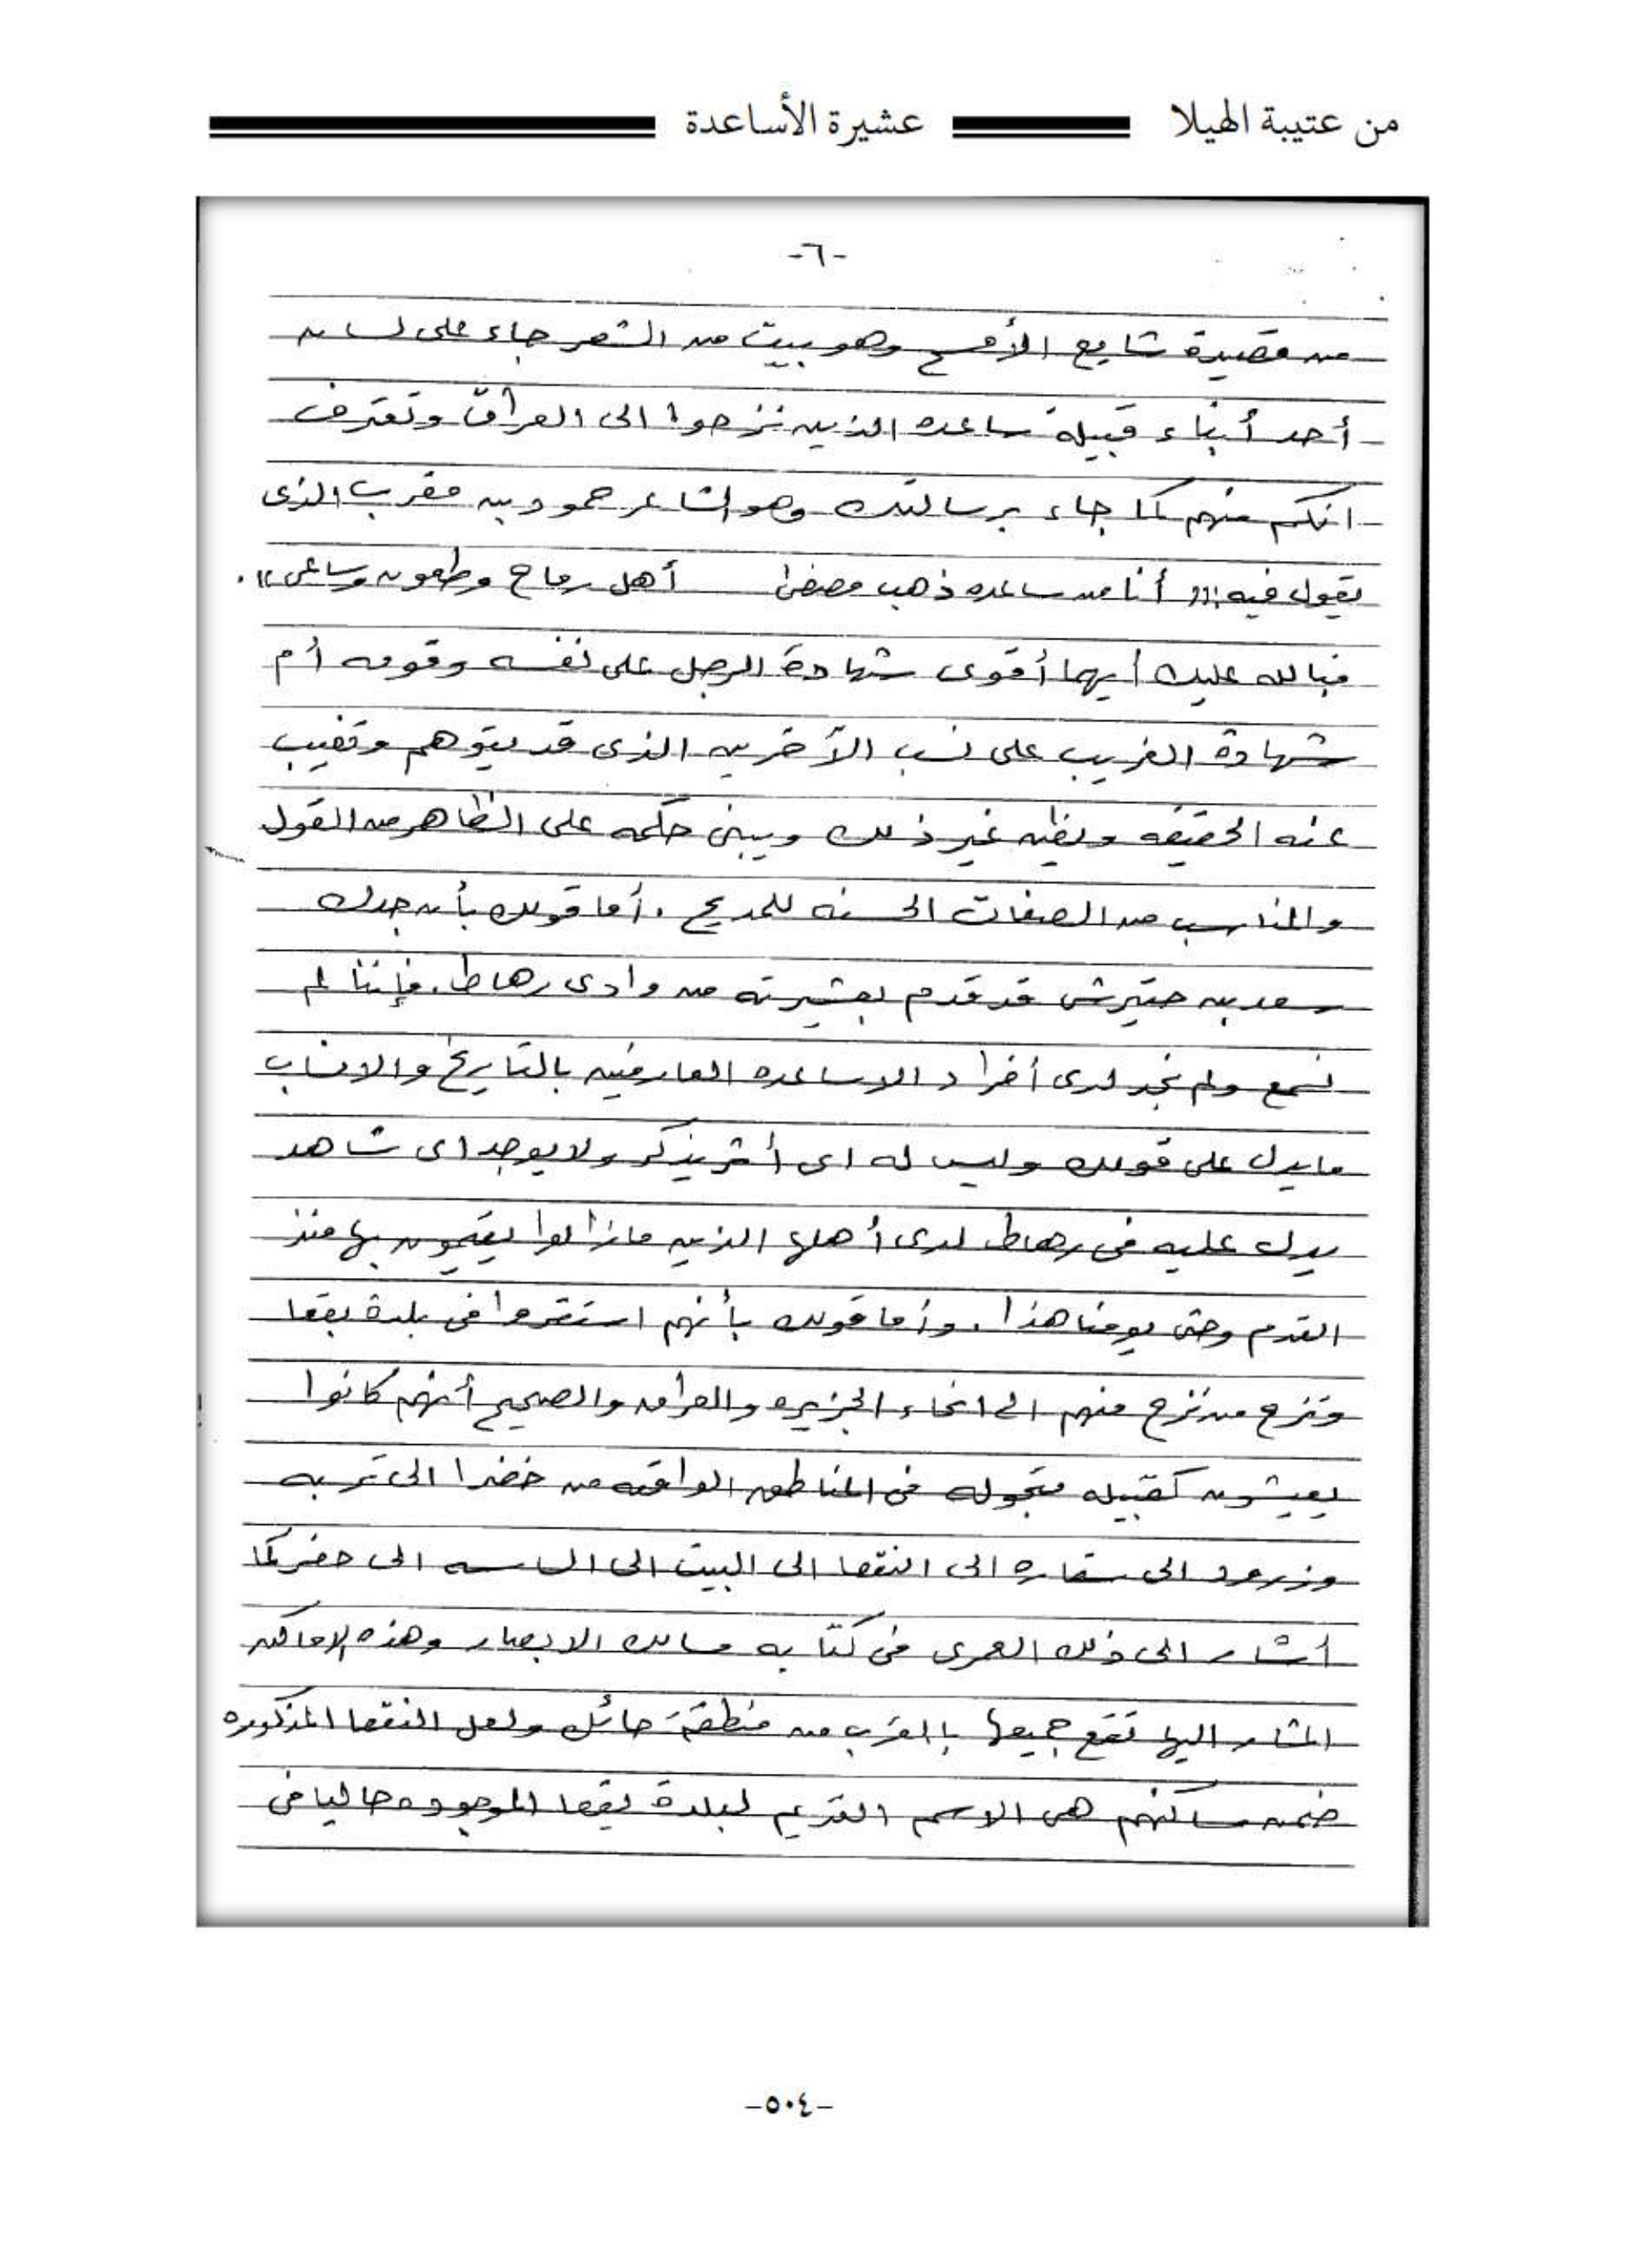 من عتيبة الهيلا عشيرة الأساعدة
-٦-
من قصيدة شايع الأمسح وهو بيت من الشعر جاء على لسان
أحد أبناء قبيلة ساعده الذين نزحوا الى العراق وتعترف
انكم منهم كما جاء برسالتك وهو الشاعر حمود بن مقرب الذى
يقول فيه :(( أنا من ساعده ذهب مصفىٰ أهل رماح وطعون وساعى )).
فبالله عليك أيهما أقوى شهادة الرجل على نفسه وقومه أم
شهادة الغريب على نسب الآخرين الذى قد يتوهم وتغيب
عنه الحقيقه ويظن غير ذلك ويبنى حكمه على الظاهر من القول
والمناسب من الصفات الحسنه للمديح . أما قولك بأن جدك
سعد بن حتيرش قد قدم بعشيرته من وادى رهاط . فإننا لم
نسمع ولم نجد لدى أفراد الاساعده العارفين بالتاريخ والانساب
مايدل على قولك وليس له اى أثر يذكر ولا يوجد اى شاهد
يدل عليه فى رهاط لدى أهلها الذين مازالوا يقيمون بها منذ
القدم وحتى يومنا هذا . وأما قولك بأنهم استقروا فى بلدة بقعا
ونزح من نزح منهم الى انحاء الجزيره والعراق والصحيح أنهم كانوا
يعيشون كقبيله متجوله فى المناطق الواقعه من خضرا الى تربه
وزرود الى سقاره الى النقعا الى البيت الى الساسه الى حضر كما
أشار الى ذلك العمرى فى كتابه مسالك الابصار وهذه الاماكن
المشار اليها تقع جميعها بالقرب من منطقة حائل ولعل النقعا المذكوره
ضمن مساكنهم هى الاسم القديم لبلدة بقعا الموجوده حاليا فى
-٥٠٤-